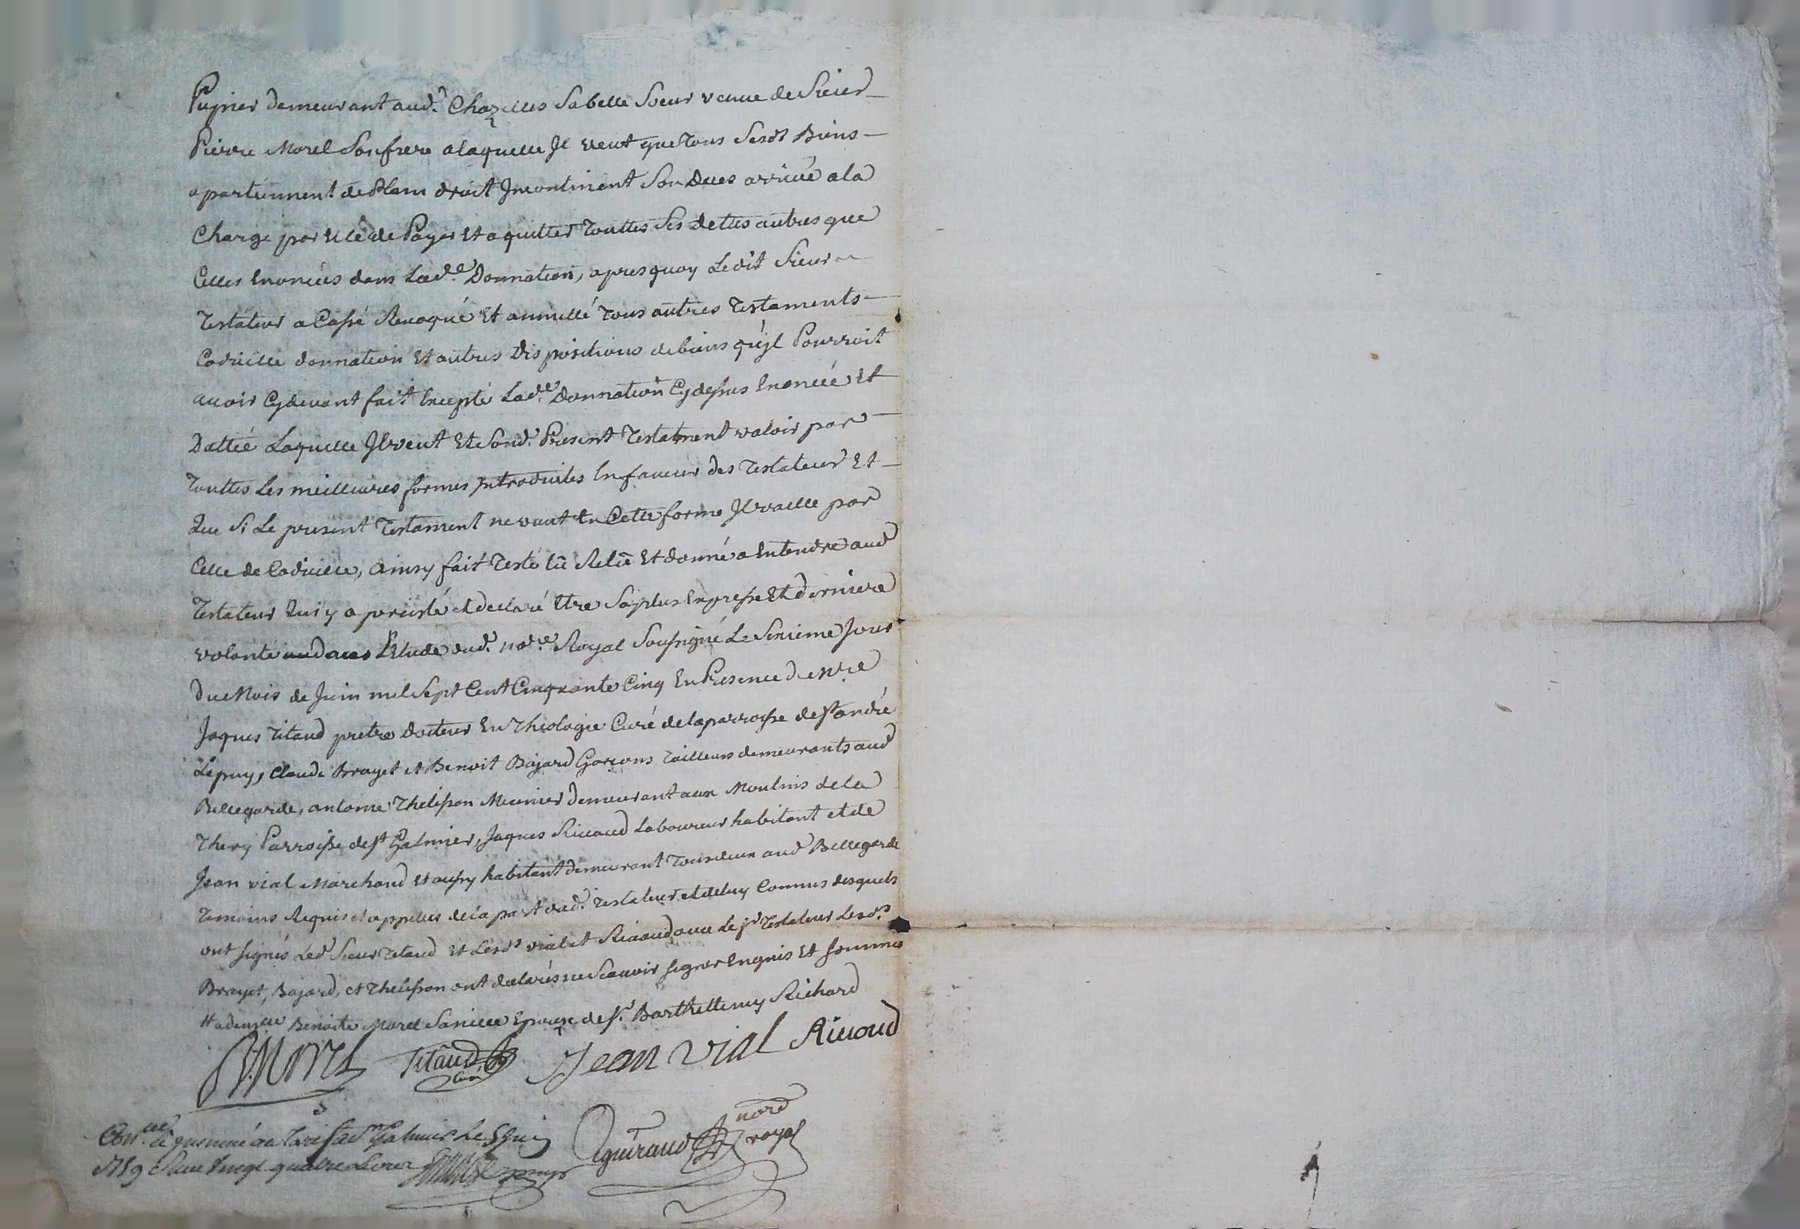 Pupier demeurant aud.^t Chazelles Sa belle Soeur veuve de Sieur
Pierre Morel Son frere a laquelle Jl veut que tous Sesd^s Biens
apartiennent de Plain droit Jncontinant Son Deces arrivé a la
Charge par Elle de Payer Et aquitter Touttes Ses Dettes autres que
Celles Enoncées dans Lad.^e Donnation, apres quoy Ledit Sieur
Testateur a Cassé Revoqué Et annullé Tous autres Testaments
Codicille donnation Et autres Dispositions de biens qu'jl Pourroit
avoir Cydevant fait Excepté Lad.^e Donnation Cy dessus Enoncée Et
Dattée Laquelle Jl veut Et Sond.^t Present Testament valoir par
Touttes Les meilleures formes Jntroduites En faveur des Testateur Et
Que Si Le present Testament ne vaut En Cette forme Jl vaille par
Celle de Codicille, ainsy fait Testé lû Relû Et donné a Entendre aud
Testateur Qui y a persisté et declaré Etre Sa plus Expresse Et derniere
volonté Etude dud.^t no^re Royal Soussigné Le Sixieme Jour
Du Mois de Juin mil Sept Cent Cinquante Cinq En Presence de
Jaques Titaud pretre Docteur En Theologie Curé de la parroisse de S^t andré
Lepuy, Claude Brayet et Benoit Bajard Garçons Tailleurs demeurants aud
Bellegarde, antoine Thelisson Meunier demeurant aux Moulins de la
Thery Parroisse de S^t Galmier, Jaques Rivaud Laboureur habitant et de
Jean vial Marchand Et aussy habitant demeurant Tous deux aud Bellegarde
Temoins Requis et appellés de la part dud.^t Testateur et de luy Connus desquels
ont Signés Led Sieur Titaud Et Lesd^s vial et Rivaud avec le S^r Testateur Lesd.^s
Brayet, Bajard, et Thelisson ont declarés ne Scavoir Signer Enquis Et Sommés
Benoite Morel Sa niece Epouse de S.^r Barthellemy Richard
Morel Titaud curé Jean Vial Rivaud
Con.^lé a St Galmier Le
1759 Reçu Vingt quatre Livres
Eguiraud no^re royal